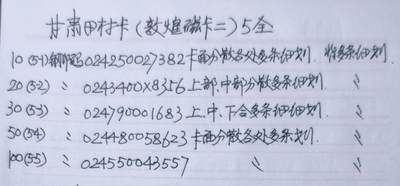 甘肃田村卡(敦煌磁卡二)5全
10(5-1)钢号码024250027382卡面分散各处多条细划.背多条细划.
20(5-2) 〃 0243400X8356上部.中部分散多条细划. 〃
30(5-3) 〃 024790001683上.中.下各多条细细划. 〃
50(5-4) 〃 024480058623卡面分散各处多条划. 〃
100(5-5) 〃 024550043557 〃 〃